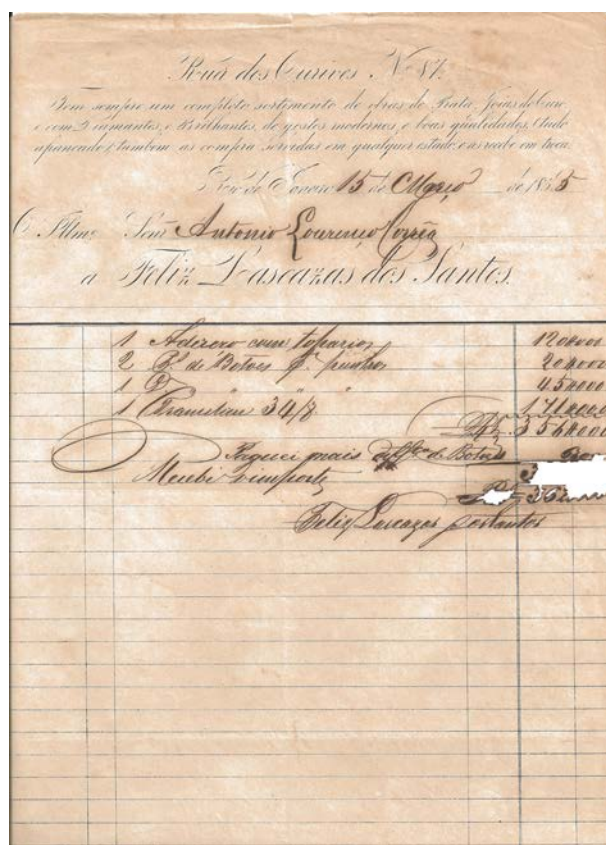 Rua dos Ourives N. 87.
Tem sempre um completo sortimento de obras de Prata, Joias de Ouro
e com Diamantes, e Brilhantes, de gostos modernos, e boas qualidades, (tudo
apançado) e tambem as compra servidas em qualquer estado, e as recebe em troca.
Rio de Janeiro 15 de Março de 1855
O Illmo Senr Antonio Lourenço Corrêa
a Feliz Lascazas dos Santos.
1 Adereço com topazios 120#000
2 Ps de Botoes pa punhos 20#000
1 Do " " 45#000
1 171#000
Rs 356#000
Paguei mais de Botoes
Recebi o importe
Feliz Lascazas dos Santos